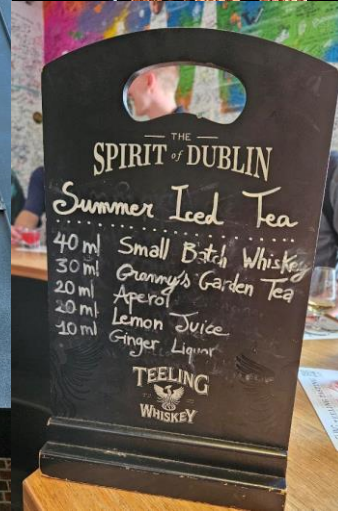 THE
SPIRIT of DUBLIN
Summer Iced Tea
40 ml Small Batch Whiskey
30 ml Granny's Garden Tea
20 ml Aperol
20 ml Lemon Juice
10 ml Ginger Liquor
TEELING
WHISKEY